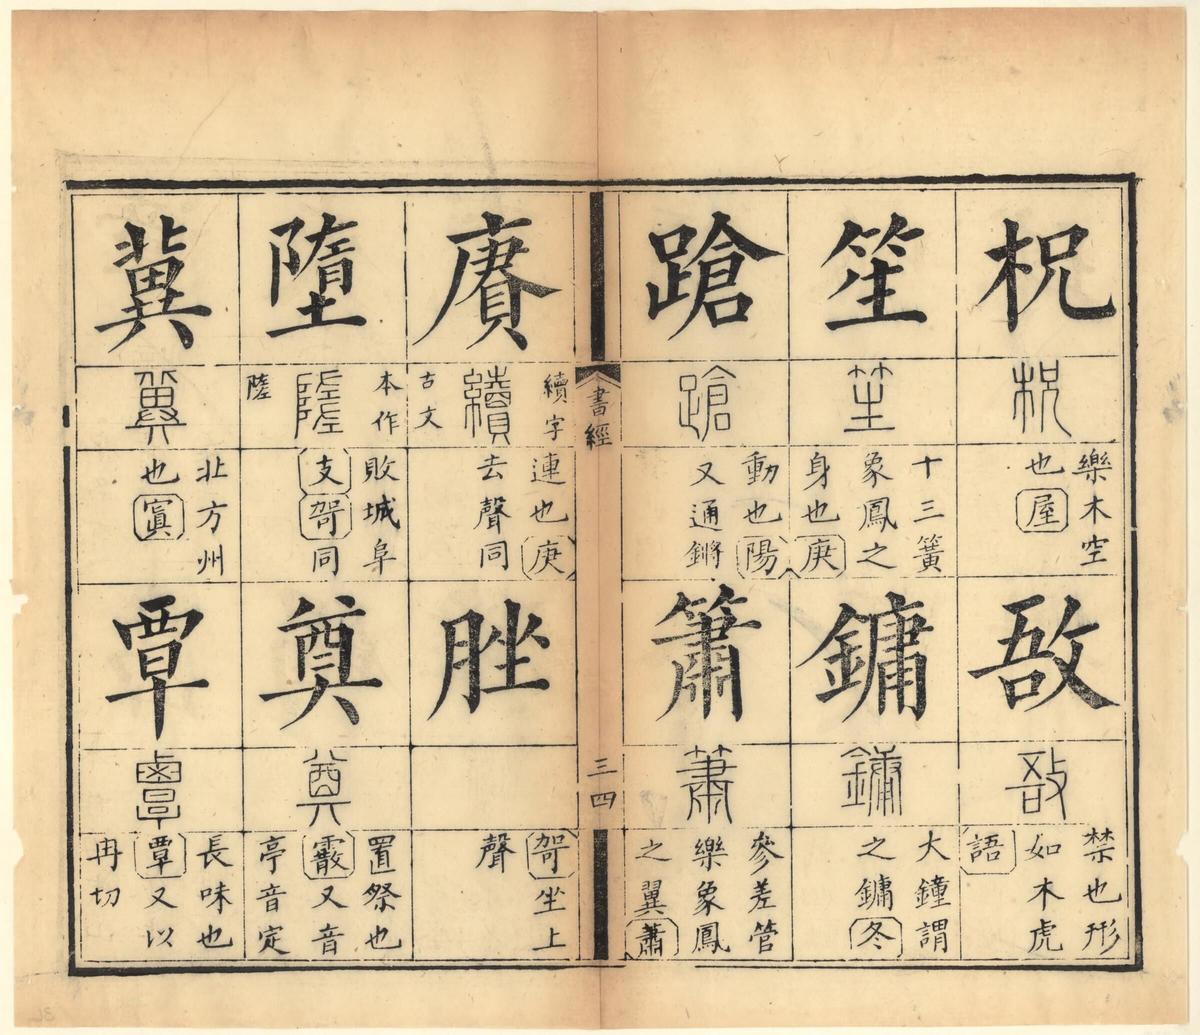 柷
柷
樂木空
也屋
敔
敔
禁也形
如木虎
語
笙
笙
十三簧
象鳳之
身也庚
鏞
鏞
大鐘謂
之鏞冬
蹌
蹌
動也陽
又通鏘
簫
簫
參差管
樂象鳳
之翼蕭
書經
三四
賡
續字
續
古文
連也庚
去聲同
脞
哿坐上
聲
墮
本作
隓
陸
敗城阜
支哿同
奠
奠
置祭也
霰又音
亭音定
冀
冀
北方州
也寘
覃
覃
長味也
覃又以
冉切